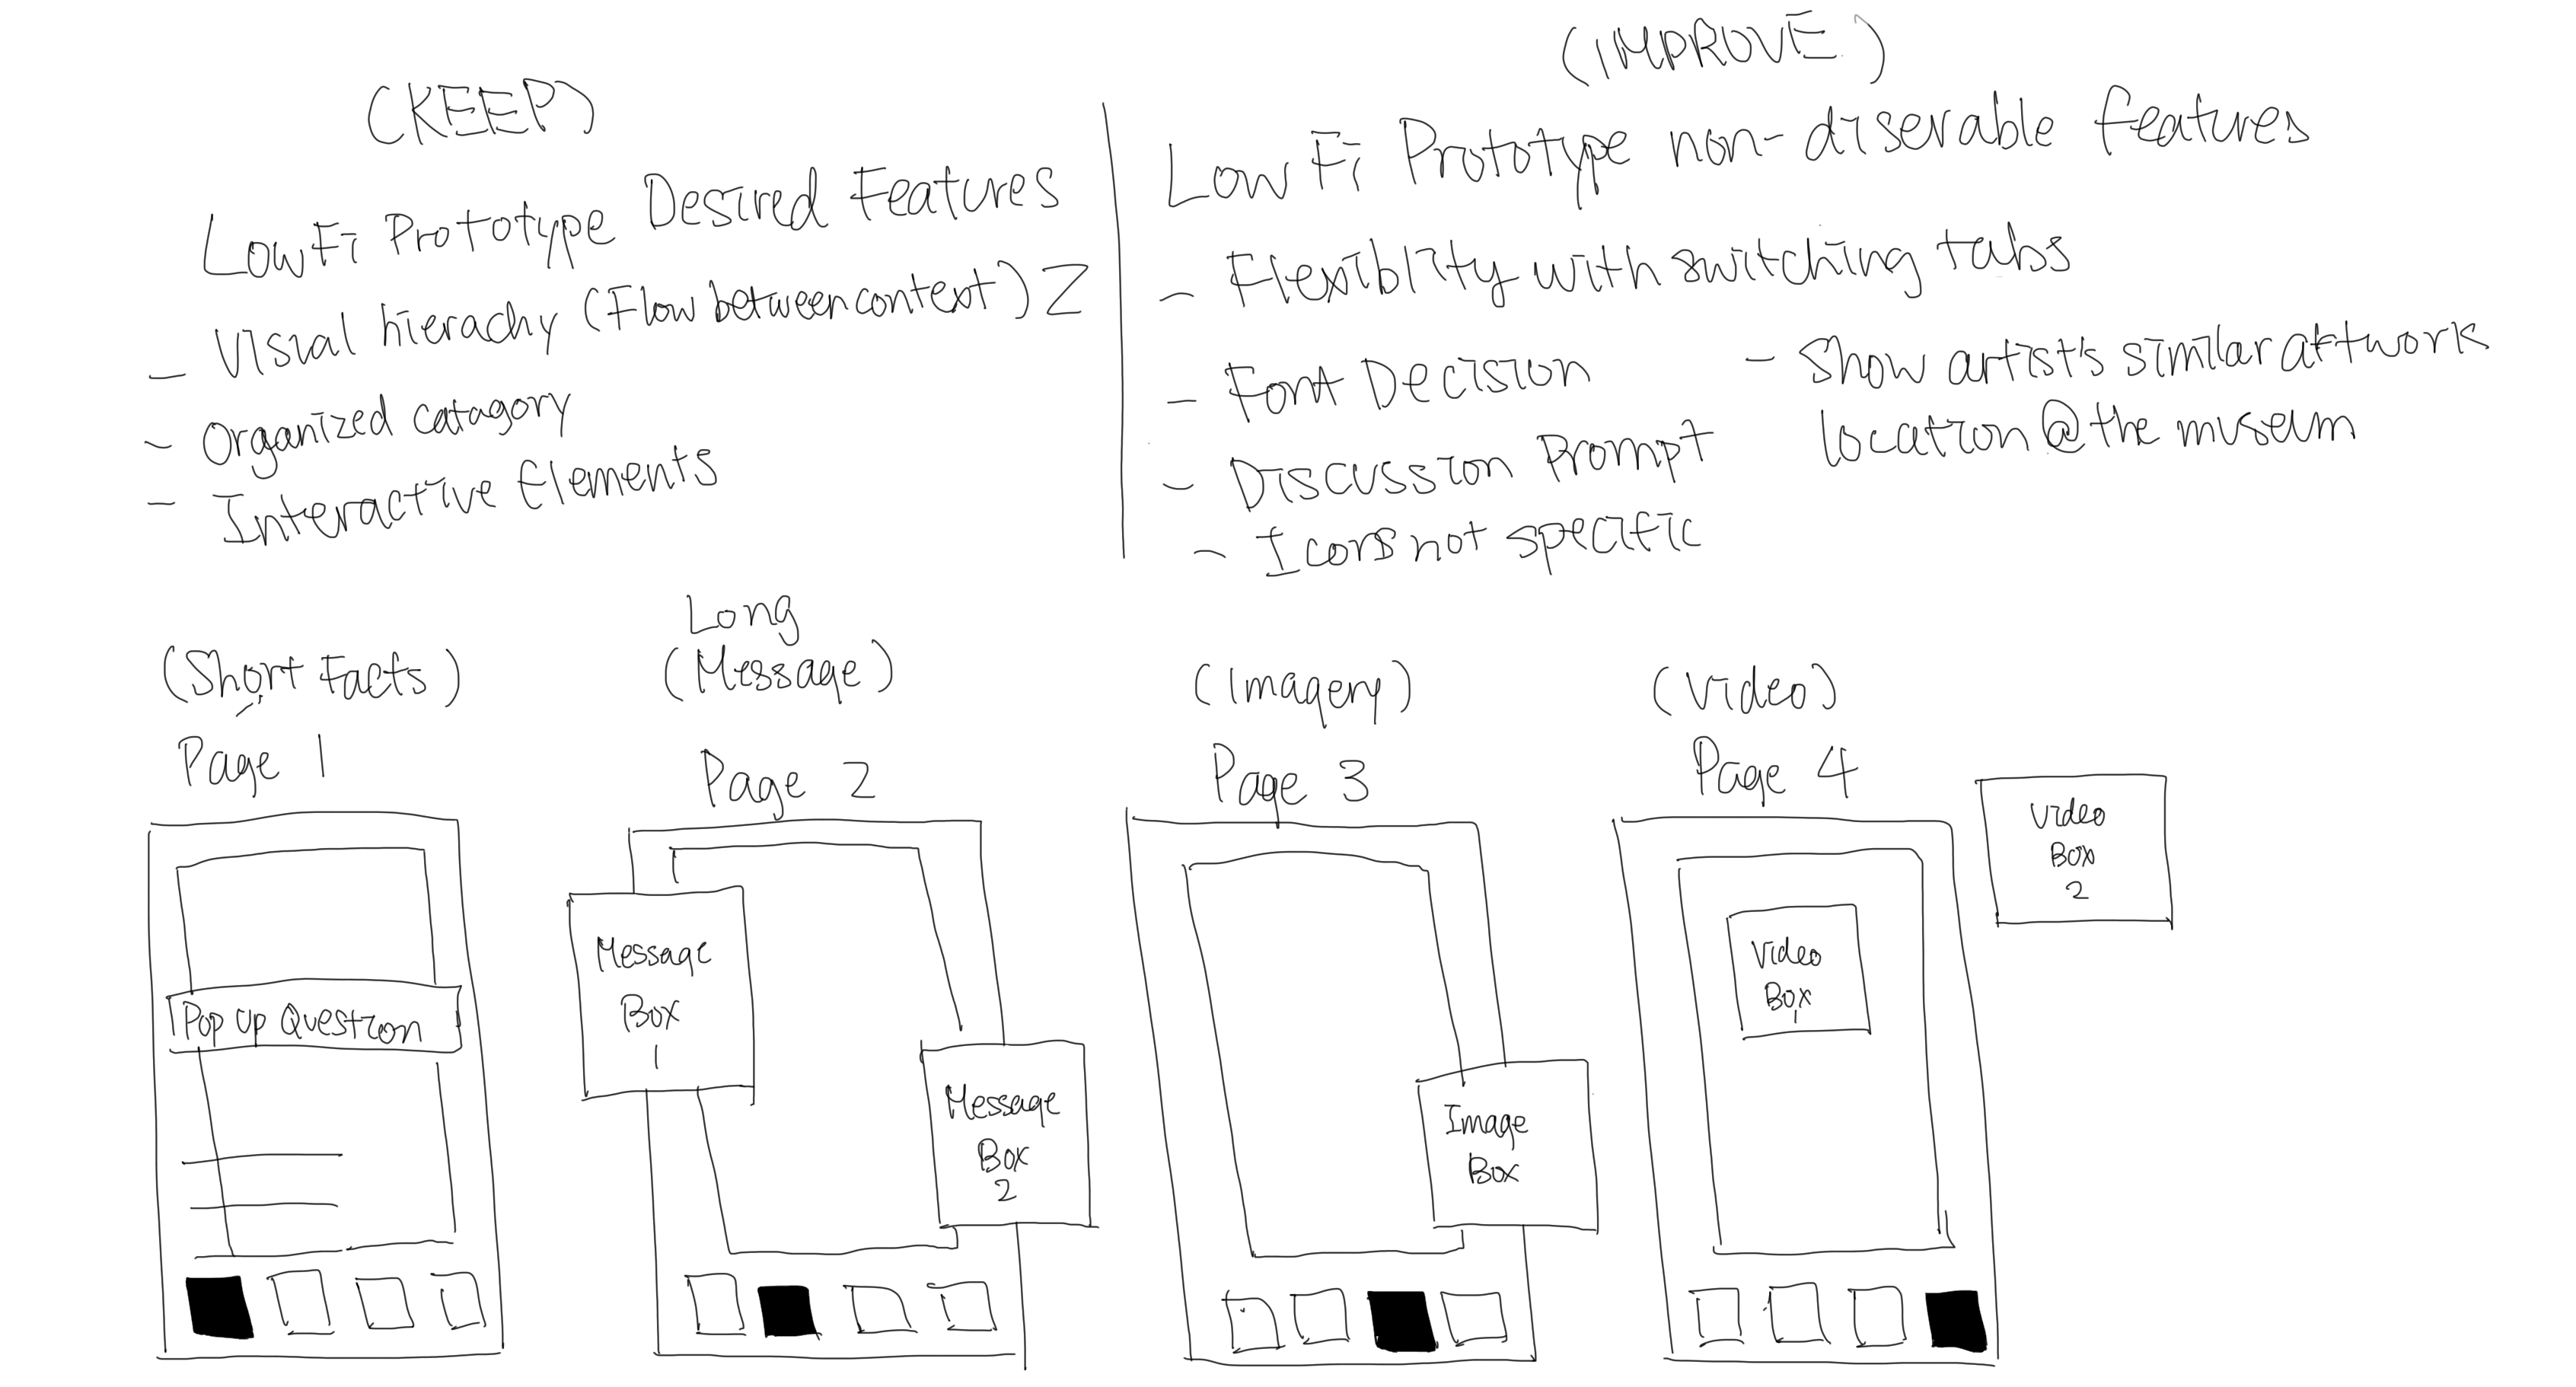 (KEEP)
LowFi Prototype Desired Features
- Visual hierachy (Flow between context) Z
- Organized catagory
- Interactive Elements
(IMPROVE)
Low Fi Prototype non-diserable features
- Flexiblity with switching tabs
- Font Decision
- Discussion Prompt
- Icons not specific
- Show artist's similar artwork
location @ the museum
(Short Facts)
Page 1
Pop up Question
Long
(Message)
Page 2
Message
Box
1
Message
Box
2
(Imagery)
Page 3
Image
Box
(Video)
Page 4
Video
Box
1
Video
Box
2